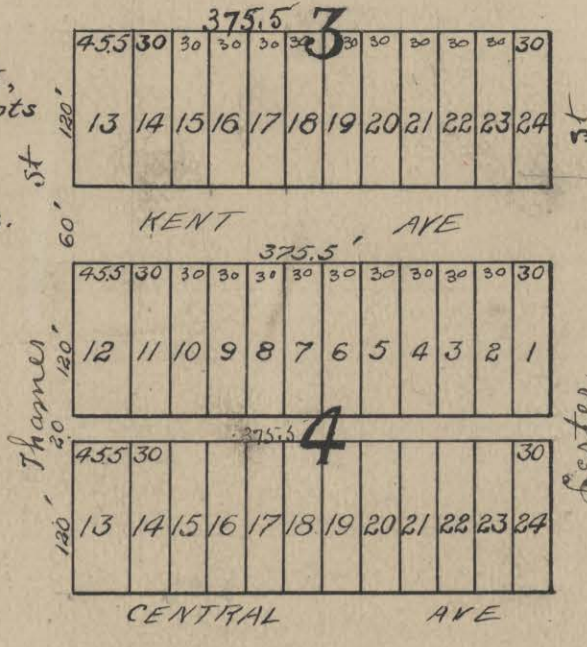 375.5 3
45.5 30 30 30 30 30 30 30 30 30 30 30
120' 13 14 15 16 17 18 19 20 21 22 23 24
St
St
60' KENT AVE
375.5'
45.5 30 30 30 30 30 30 30 30 30 30 30
120' 12 11 10 9 8 7 6 5 4 3 2 1
Thames
20' 375.5 4
45.5 30 30
120' 13 14 15 16 17 18 19 20 21 22 23 24
CENTRAL AVE